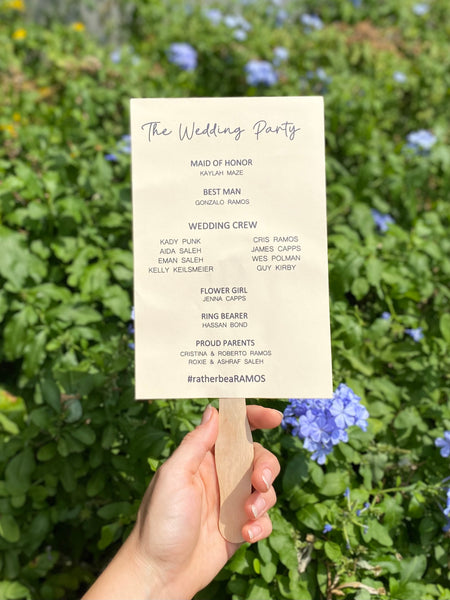 The Wedding Party
MAID OF HONOR
KAYLAH MAZE
BEST MAN
GONZALO RAMOS
WEDDING CREW
KADY PUNK CRIS RAMOS
AIDA SALEH JAMES CAPPS
EMAN SALEH WES POLMAN
KELLY KEILSMEIER GUY KIRBY
FLOWER GIRL
JENNA CAPPS
RING BEARER
HASSAN BOND
PROUD PARENTS
CRISTINA & ROBERTO RAMOS
ROXIE & ASHRAF SALEH
#ratherbeaRAMOS